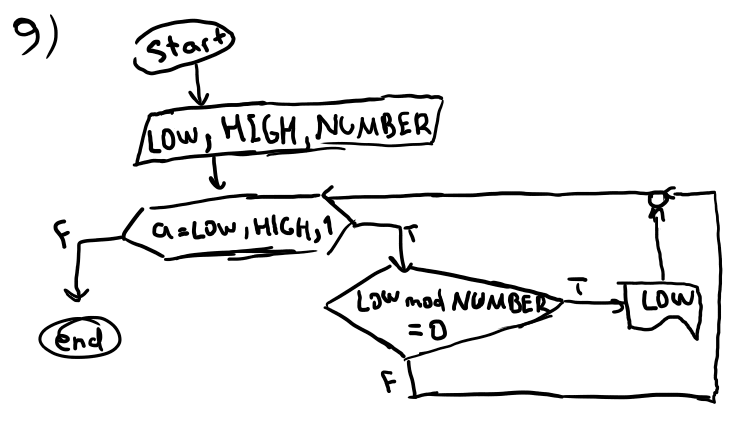 9)
Start
LOW, HIGH, NUMBER
F
a=LOW, HIGH, 1
T
LOW mod NUMBER
=0
T
LOW
end
F